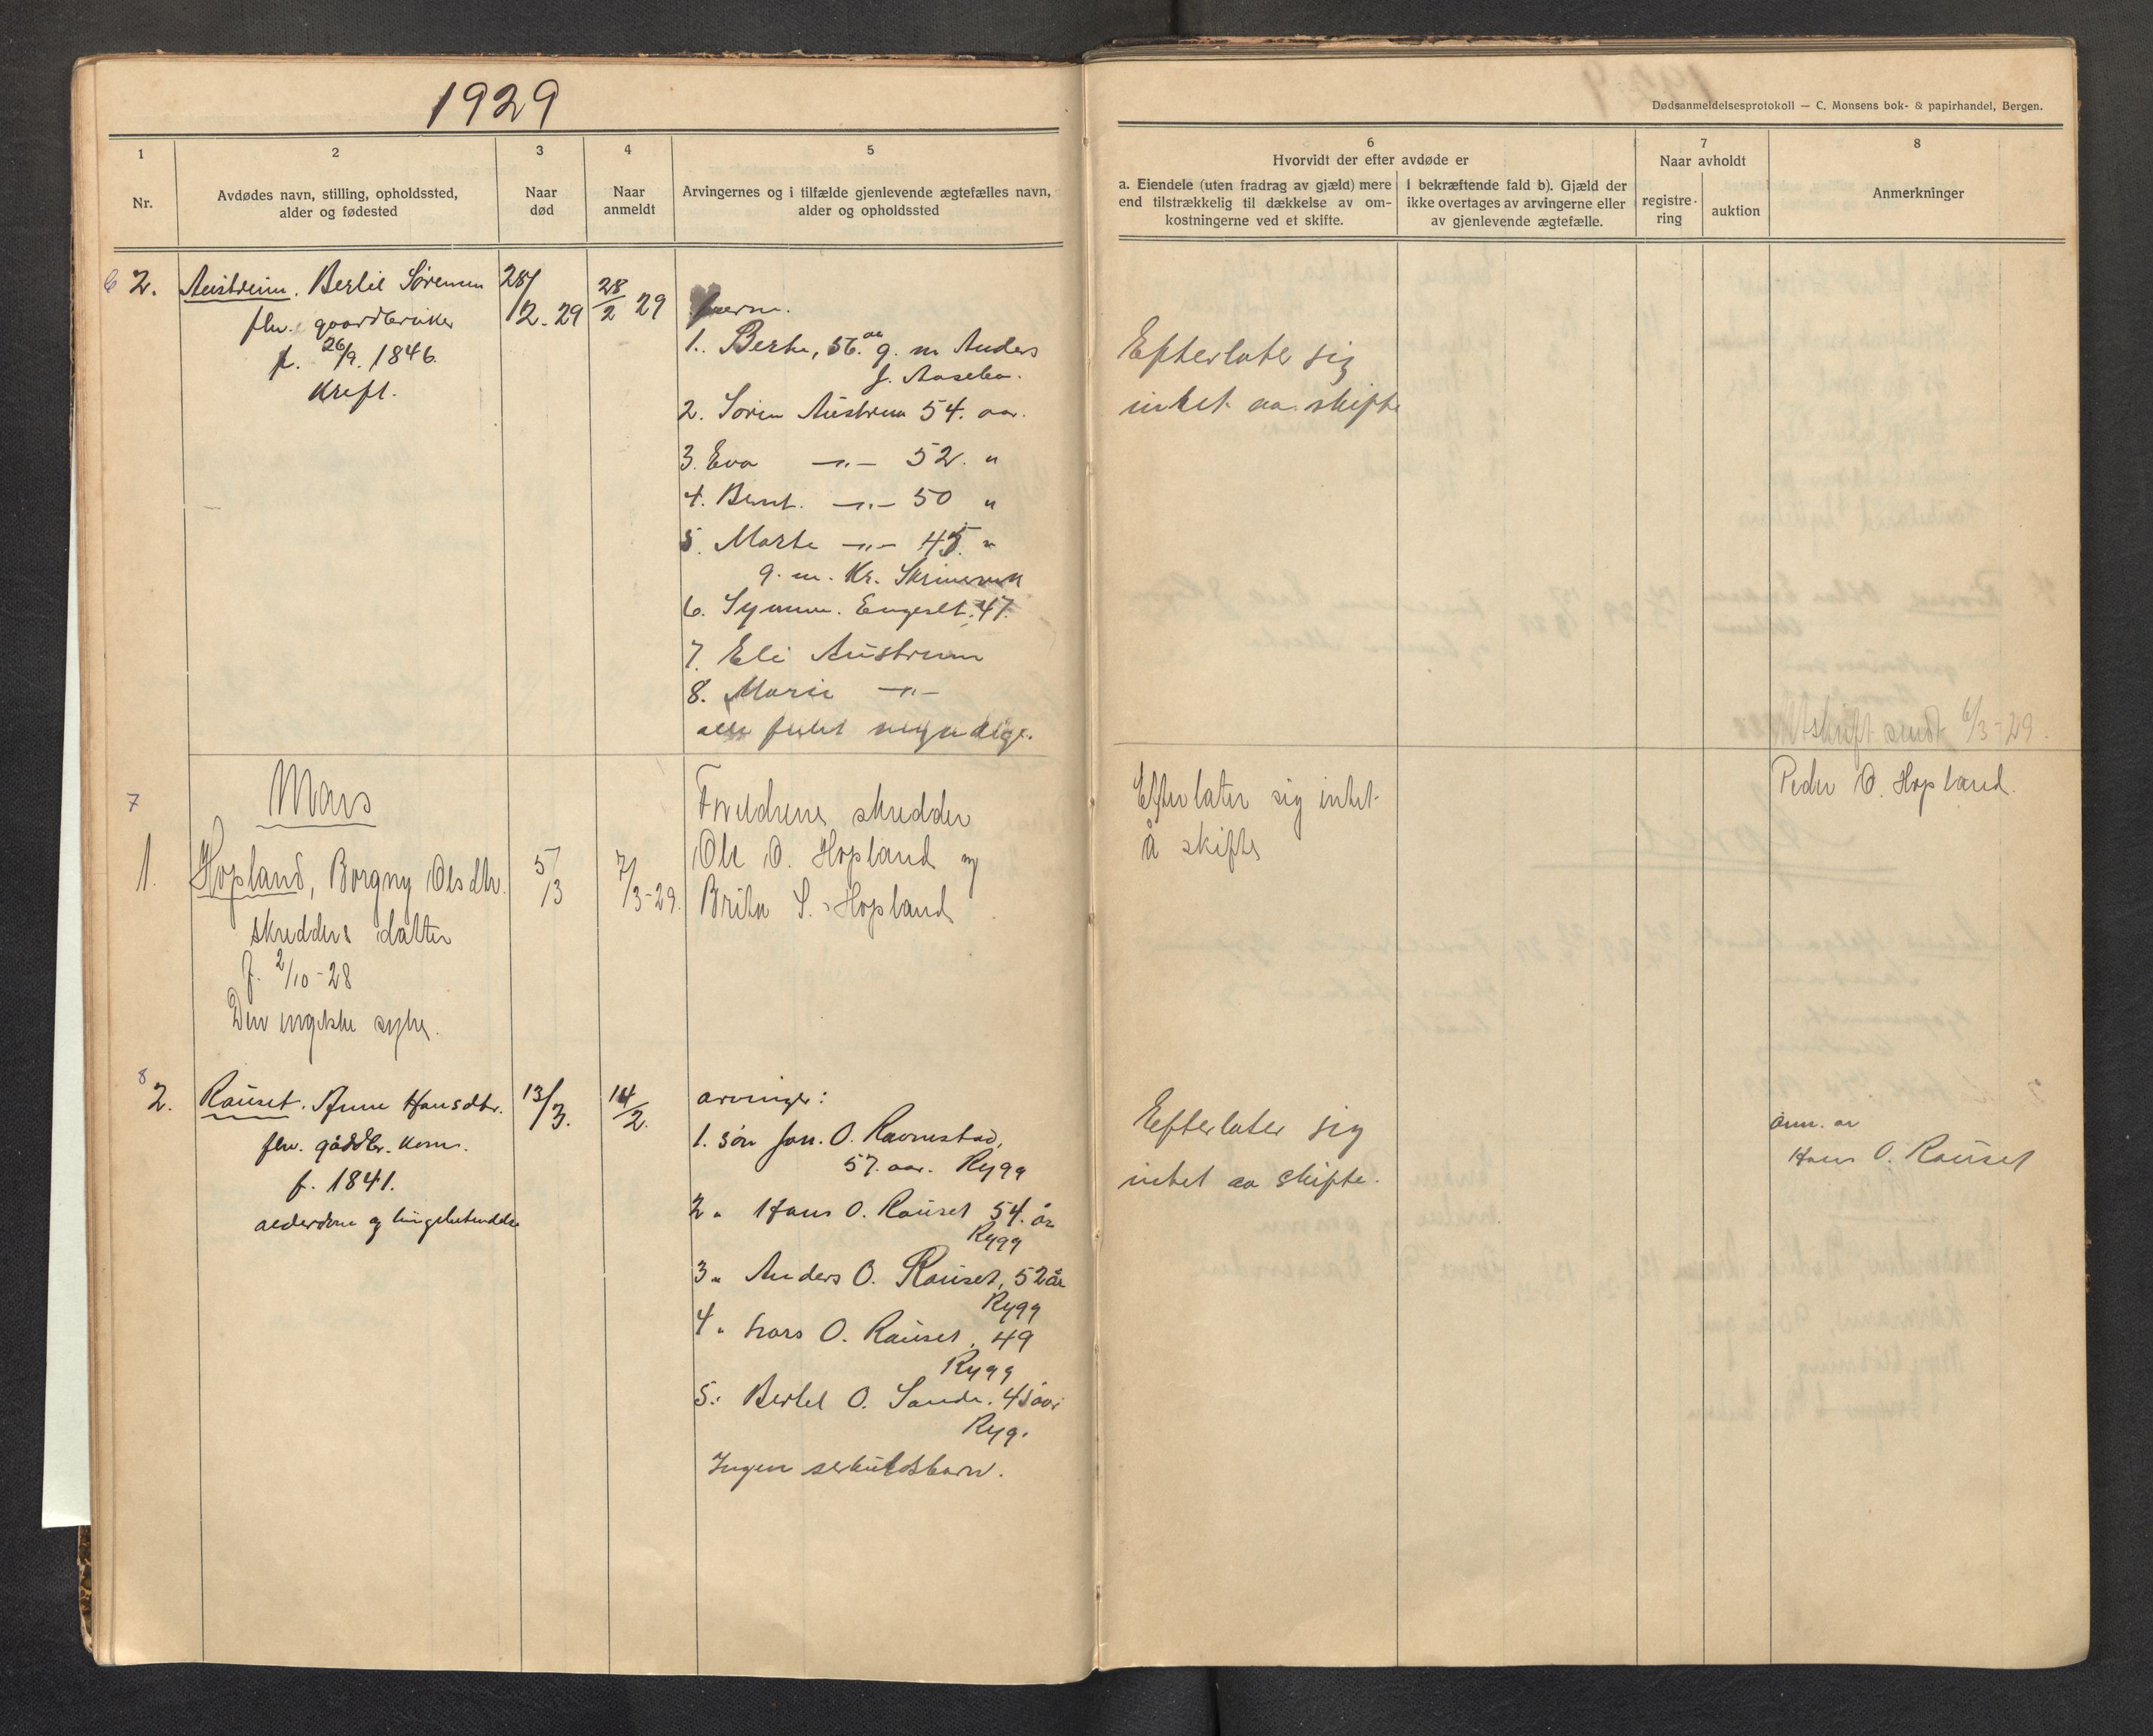 1929
1
2
3
4
5
Nr.
Avdødes navn, stilling, opholdssted,
alder og fødested
Naar
død
Naar
anmeldt
Arvingernes og i tilfælde gjenlevende ægtefælles navn,
alder og opholdssted
6 2.
Austreim. Bertil Sørensen
flv. gaardbruker
f. 26/9. 1846.
Kreft.
28/2. 29
28/2 29
1. Berte, 56. aar g. m Anders
J. Aasebø.
2. Søren Austreim 54. aar.
3. Eva —"— 52. "
4. Bernt. —"— 50 "
5. Marte —"— 45. "
g. m. Kr.
6. Synneve. Engeset. 47.
7. Eli Austreim
8. Marie —"—
alle fuldt myndige.
7
Mars
1.
Hopland, Borgny Olsdtr.
skredders datter
f. 2/10-28
Den engelske syke.
5/3
7/3-29.
Foreldrene skredder
Ole O. Hopland og
Brita S. Hopland
8
2.
Rauset. Anne Hansdtr.
flv. gårdbr. kone.
f. 1841.
alderdom og lungebetendelse
13/3.
14/2.
arvinger:
1. søn Jon. O. Ravnestad,
57. aar. Rygg
2 " Hans O. Rauset 54. år
Rygg
3 " Anders O. Rauset, 52 år
Rygg
4 " Lars O. Rauset, 49
Rygg
5 " Bertel O. Sande. 45 aar
Ryg.
Ingen serkulsbarn.
Dødsanmeldelsesprotokoll — C. Monsens bok- & papirhandel, Bergen.
6
Hvorvidt der efter avdøde er
a. Eiendele (uten fradrag av gjæld) mere
end tilstrækkelig til dækkelse av om-
kostningerne ved et skifte.
I bekræftende fald b). Gjæld der
ikke overtages av arvingerne eller
av gjenlevende ægtefælle.
7
Naar avholdt
registre-
ring
auktion
8
Anmerkninger
Efterlater sig
intet aa skifte
Utskrift sendt 6/3-29.
Efterlater sig intet
å skifte
Peder O. Hopland.
Efterlater sig
intet aa skifte.
anm. av
Hans O. Rauset